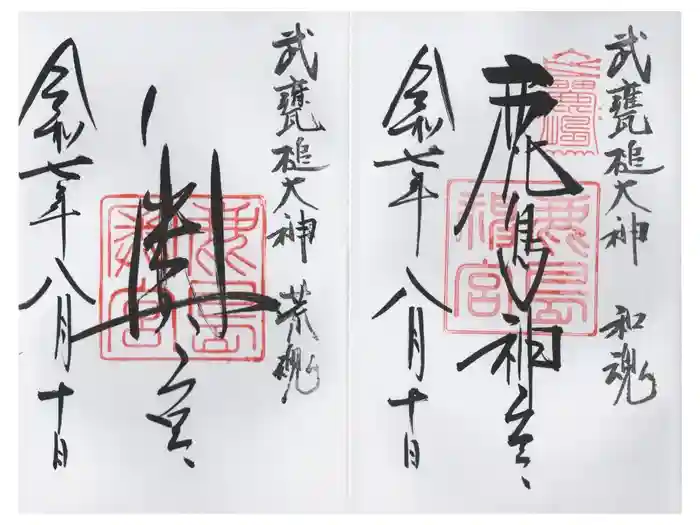 武甕槌大神 和魂
鹿島神宮
鹿島
神宮
令和七年八月十日
武甕槌大神 荒魂
奥宮
鹿島
奥宮
令和七年八月十日